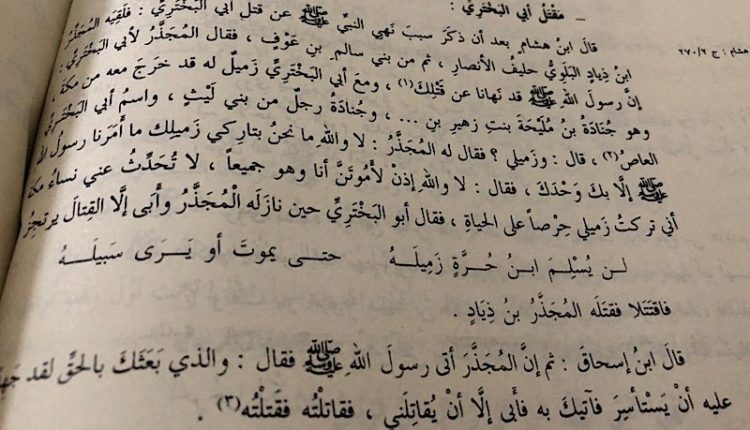 ـ مَقْتَلُ أبي البَخْتَرِيِّ :
قال ابنُ هشام بعد أن ذكرَ سببَ نَهي النبيِّ ﷺ عن قتلِ أبي البَخْتَرِيِّ : فَلَقِيَه المُجَذَّرُ
هشام : ج ٢ / ٢٧٠
ابنُ ذِيادٍ البَلَوِيُّ حليفُ الأنصارِ ، ثم من بني سالم بنِ عَوْفٍ ، فقال المُجَذَّرُ لأبي البَخْتَرِيِّ :
إنَّ رسولَ الله ﷺ قد نَهانا عن قَتْلِكَ (١) ، ومعَ أبي البَخْتَرِيِّ زَميلٌ له قد خرَجَ معه من مكةَ ،
وهو جُنَادَةُ بنُ مُلَيْحَةَ بنتِ زهيرِ بنِ ... ، وجُنادَةُ رجلٌ من بني لَيْثٍ ، واسمُ أبي البَخْتَرِيِّ
العاصُ (٢) ، قال : وزَميلي ؟ فقال له المُجَذَّرُ : لا واللهِ ما نحنُ بتارِكي زَميلِك ما أَمَرنا رسولُ الله
ﷺ إلَّا بكَ وَحْدَكَ ، فقال : لا واللهِ إذنْ لأَمُوتَنَّ أنا وهو جميعاً ، لا تُحَدِّثُ عني نساءُ مكةَ
أني تركتُ زَميلي حِرْصاً على الحياةِ ، فقال أبو البَخْتَرِيِّ حين نازَلَه الْمُجَذَّرُ وأَبى إلَّا القِتالَ يرتجِزُ
لن يُسْلِمَ ابنُ حُرَّةٍ زَمِيلَـهُ حتـى يموتَ أو يَـرَى سَبِيلَـهُ
فاقتَتَلا فقتَلَه المُجَذَّرُ بنُ ذِيَادٍ .
قالَ ابنُ إسحاقَ : ثم إنَّ المُجَذَّرَ أتى رسولَ اللهِ ﷺ فقال : والذي بَعَثَكَ بالحقِّ لقد
عليه أنْ يَسْتَأسِرَ فآتِيكَ به فأَبى إلَّا أنْ يُقاتِلَني ، فقاتلْتُه فقَتلْتُه (٣) .